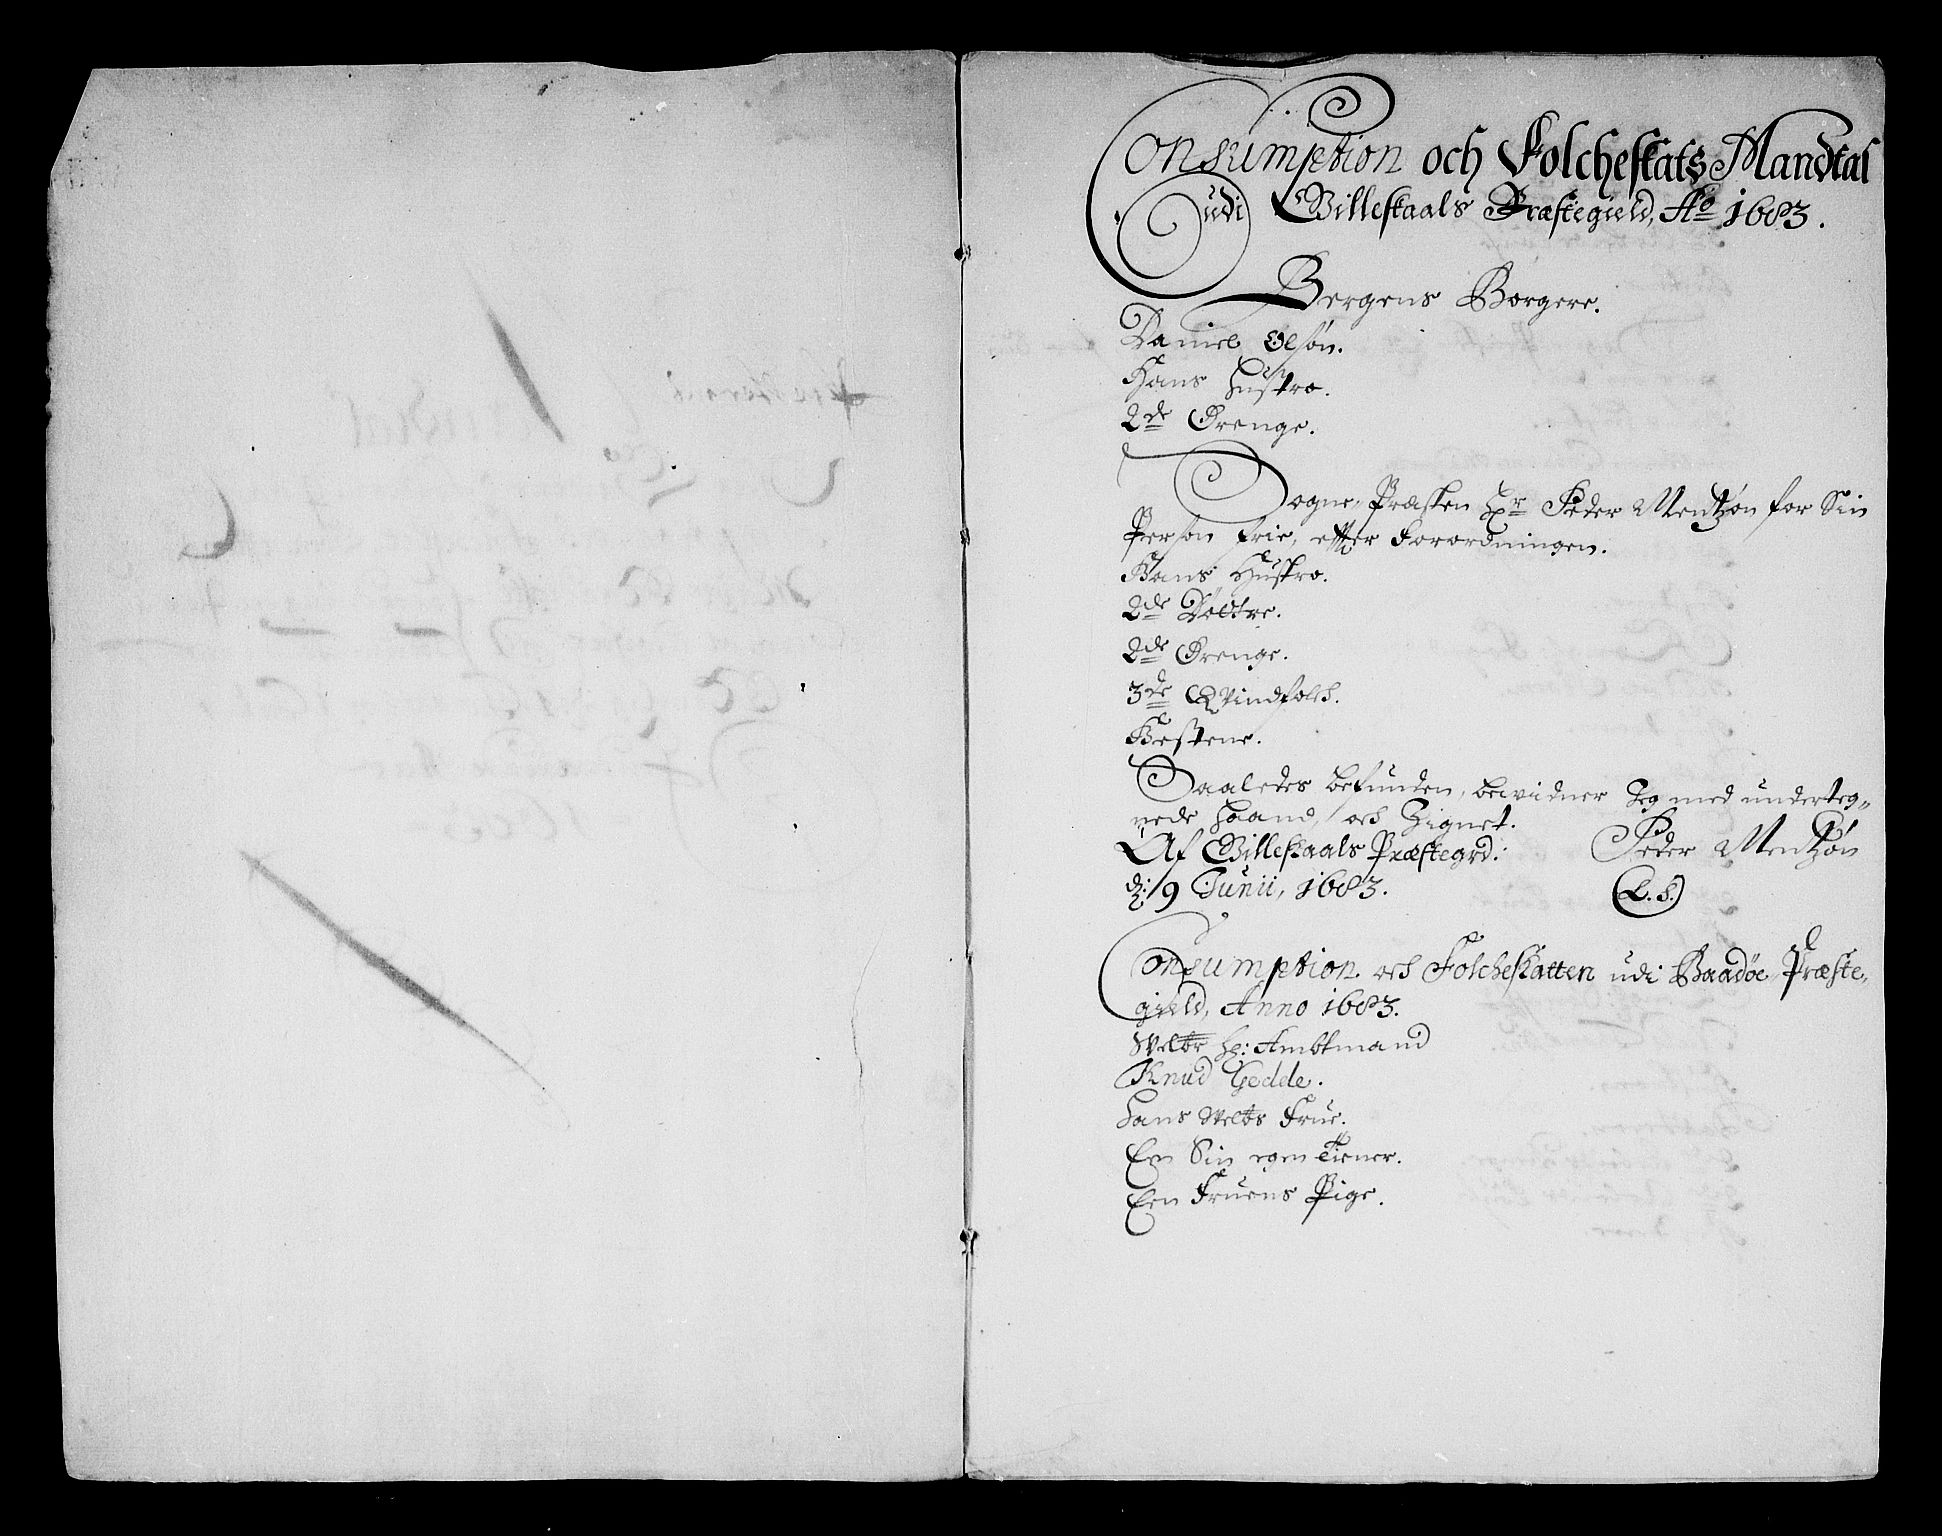 Consumption och Folcheskats Mandtal
udi Gilleskaals Præstegield, Ao 1683.
Bergens Borgere.
Daniel Olsøn.
Hans Hustro.
2de Drenge.
Sogne-Præsten Hr Peder Mentzøn for Sin
Person frie, efter Forordningen.
Hans Hustro.
2de Døttre.
2de Drenge.
3de Qvindfolch.
Hestene.
Saaledes befunden, bevidner Jeg med underteg-
nede Haand, och Zignet.
Af Gilleskaals Præstegrd:
Peder Mentzøn
d: 9 Junii, 1683.
(L.S.)
Consumption och Folcheskatten udi Baadøe Præste-
gield, Anno 1683.
Welbr Hr: Ambtmand
Knud Gedde.
Hans Welbs Frue.
Een Sin egen Tiener.
Een Fruens Pige.